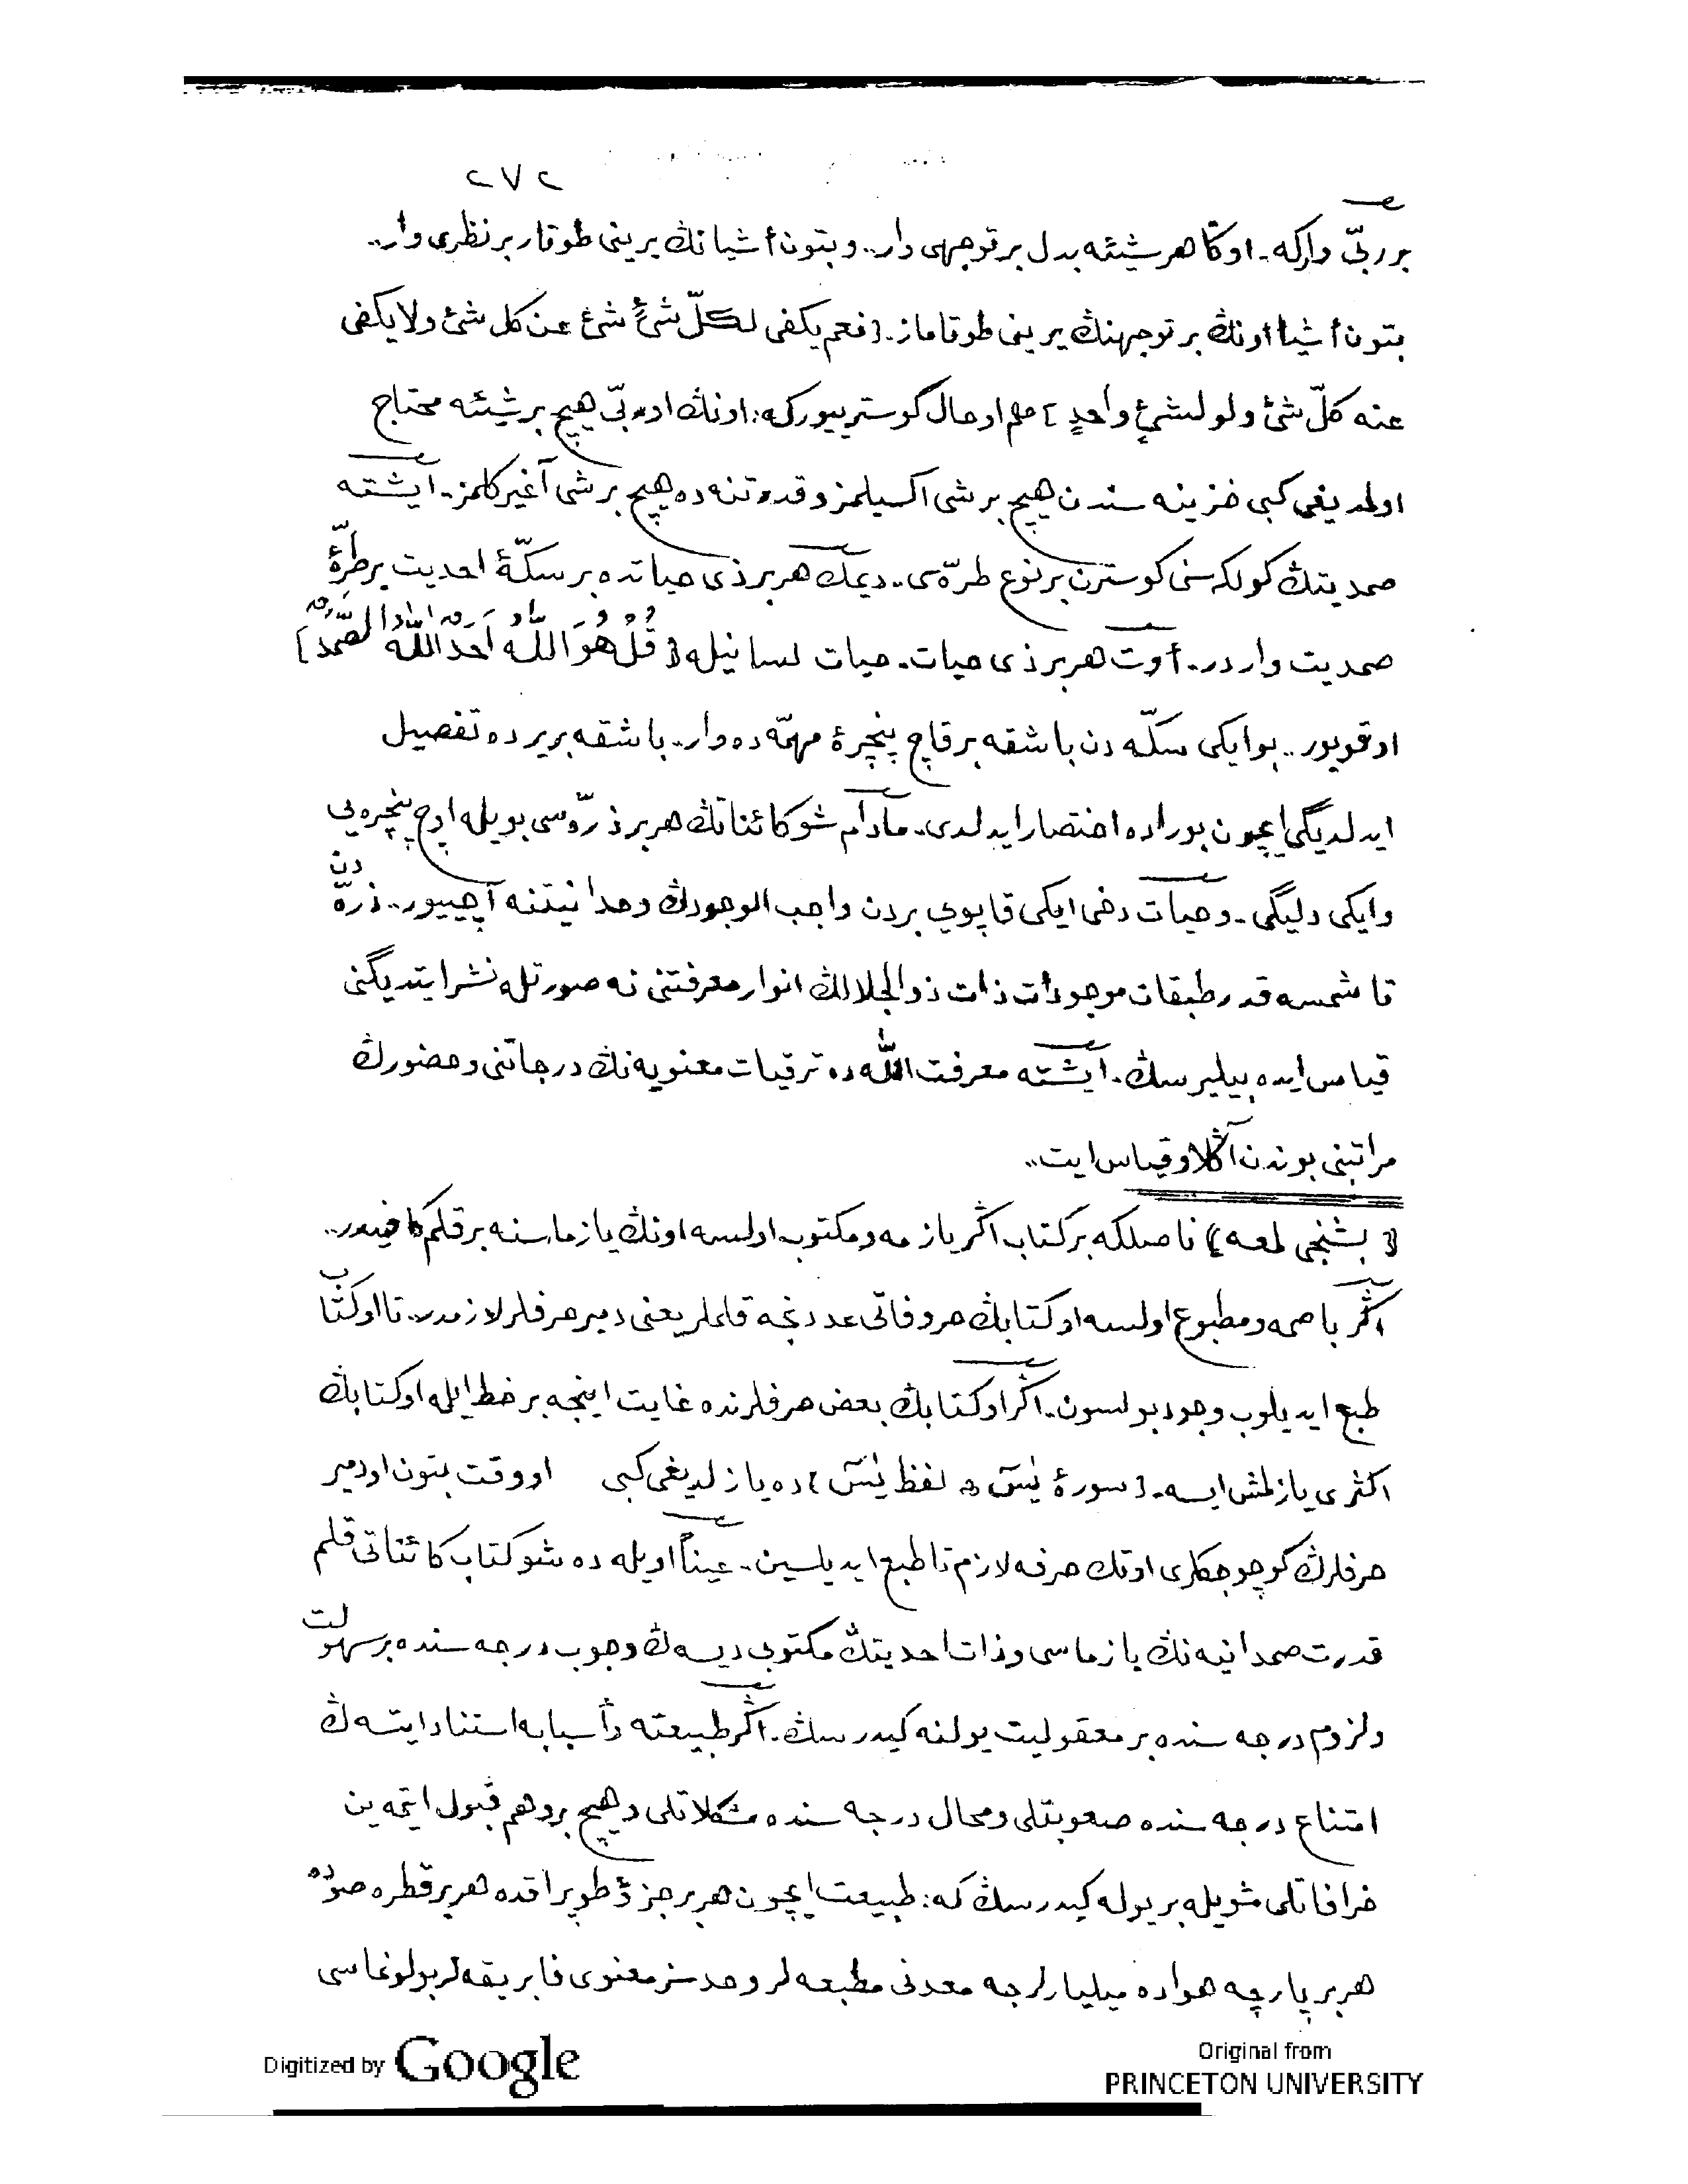 ٢٧٢
بر ربّی وار که. اوڭا هر شیئه بدل بر توجهی وار.. و بتون أشیانڭ یرینی طوتار بر نظری وار..
بتون أشیا اونڭ بر توجهنڭ یرینی طوتاماز. [نعم یکفی لکلّ شئٍ شئ عن کل شئ ولا یکفی
عنه کلّ شئ ولو لشئٍ واحدٍ] هم او حال گوستریيور که: اونڭ او ربّی هیچ بر شیئه محتاج
اولمدیغی کبی خزینه سندن هیچ بر شی اکسیلمز و قدرتنه ده هیچ بر شی آغیر کلمز. ایشته
صمدیتڭ کولکه سنی کوسترن بر نوع طرّه‌سی. دیمك هر بر ذی حیاتده بر سکّهٔ احدیت بر طرّهٔ
صمدیت واردر. أوت هر بر ذی حیات. حیات لسانیله [قُلْ هُوَ اللّٰهُ اَحَدٌ اَللّٰهُ الصَّمَدُ]
اوقویور.. بو ایکی سکّه دن باشقه بر قاچ پنجرهٔ مهمّه ده وار.. باشقه بر یرده تفصیل
ایدلدیگی ایچون بوراده اختصار ایدلدی. مادام شو کائناتڭ هر بر ذرّه‌سی بویله اوچ پنجره‌یی
و ایکی دلیگی. و حیات دخی ایکی قاپویی بردن واجب الوجودڭ وحدانیتنه آچییور.. ذرّه دن
تا شمسه قدر طبقات موجودات ذات ذوالجلالڭ انوار معرفتنی نه صورتله نشر ایتدیگنی
قیاس ایده بیلیرسڭ. ایشته معرفت اللّٰه ده ترقیات معنویه نڭ درجاتنی و حضورڭ
مراتبنی بوندن آڭلا و قیاس ایت..
[بشنجی لمعه] ناصلکه بر کتاب اگر یازمه و مکتوب اولسه اونڭ یازماسنه بر قلم کافیدر..
اگر باصمه و مطبوع اولسه او کتابڭ حروفاتی عددنجه قلملر یعنی دمیر حرفلر لازمدر. تا او کتاب
طبع ایدیلوب وجود بولسون. اگر او کتابڭ بعض حرفلرنده غایت اینجه بر خط ایله او کتابڭ
اکثری یازلمش ایسه. [سورهٔ یٰسٓ لفظ یٰسٓ] ده یازلدیغی کبی او وقت بتون او دمیر
حرفلرڭ کوچوجکلری او تك حرفه لازم تا طبع ایدیلسین. عیناً اویله ده شو کتاب کائناتی قلم
قدرت صمدانیه نڭ یازماسی و ذات احدیتڭ مکتوبی دیسه ڭ وجوب درجه سنده بر سهولت
و لزوم درجه سنده بر معقولیت یولنه کیدرسڭ. اگر طبیعته و أسبابه استناد ایتسه ڭ
امتناع درجه سنده صعوبتلی و محال درجه سنده مشکلاتلی و هیچ بر وهم قبول ایتمه ین
خرافاتلی شویله بر یوله کیدرسڭ که: طبیعت ایچون هر بر جزؤ طوپراقده هر بر قطره صوده
هر بر پارچه هواده میلیارلرجه معدنی مطبعه لر و حدسز معنوی فابریقه لر بولونماسی
Digitized by Google
Original from
PRINCETON UNIVERSITY